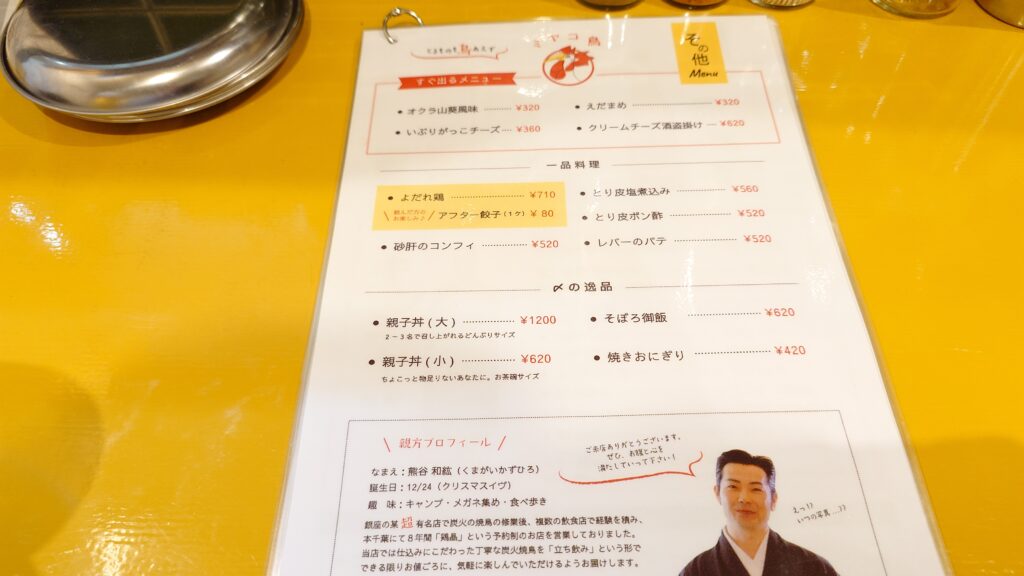 とりもちも鳥あえず
ミヤコ鳥
その他
Menu
すぐ出るメニュー
● オクラ山葵風味 ……… ¥320
● えだまめ ……… ¥320
● いぶりがっこチーズ … ¥360
● クリームチーズ酒盗掛け … ¥620
一品料理
● よだれ鶏 ……… ¥710
● とり皮塩煮込み ……… ¥560
\ 飲んだ方の お楽しみ♪ / アフター餃子(1ケ) ¥ 80
● とり皮ポン酢 ……… ¥520
● 砂肝のコンフィ ……… ¥520
● レバーのパテ ……… ¥520
〆の逸品
● 親子丼(大) ……… ¥1200
2－3名で召し上がれるどんぶりサイズ
● そぼろ御飯 ……… ¥620
● 親子丼(小) ……… ¥620
ちょこっと物足りないあなたに。お茶碗サイズ
● 焼きおにぎり ……… ¥420
\ 親方プロフィール /
なまえ：熊谷 和紘（くまがいかずひろ）
誕生日：12/24（クリスマスイヴ）
趣　味：キャンプ・メガネ集め・食べ歩き
銀座の某 超 有名店で炭火の焼鳥の修業後、複数の飲食店で経験を積み、
本千葉にて８年間「鶏晶」という予約制のお店を営業しておりました。
当店では仕込みにこだわった丁寧な炭火焼鳥を「立ち飲み」という形で
できる限りお値ごろに、気軽に楽しんでいただけるようお届けします。
ご来店ありがとうございます。
ぜひ、お腹と心を
満たしていって下さい！
えっ!?
いつの写真...??